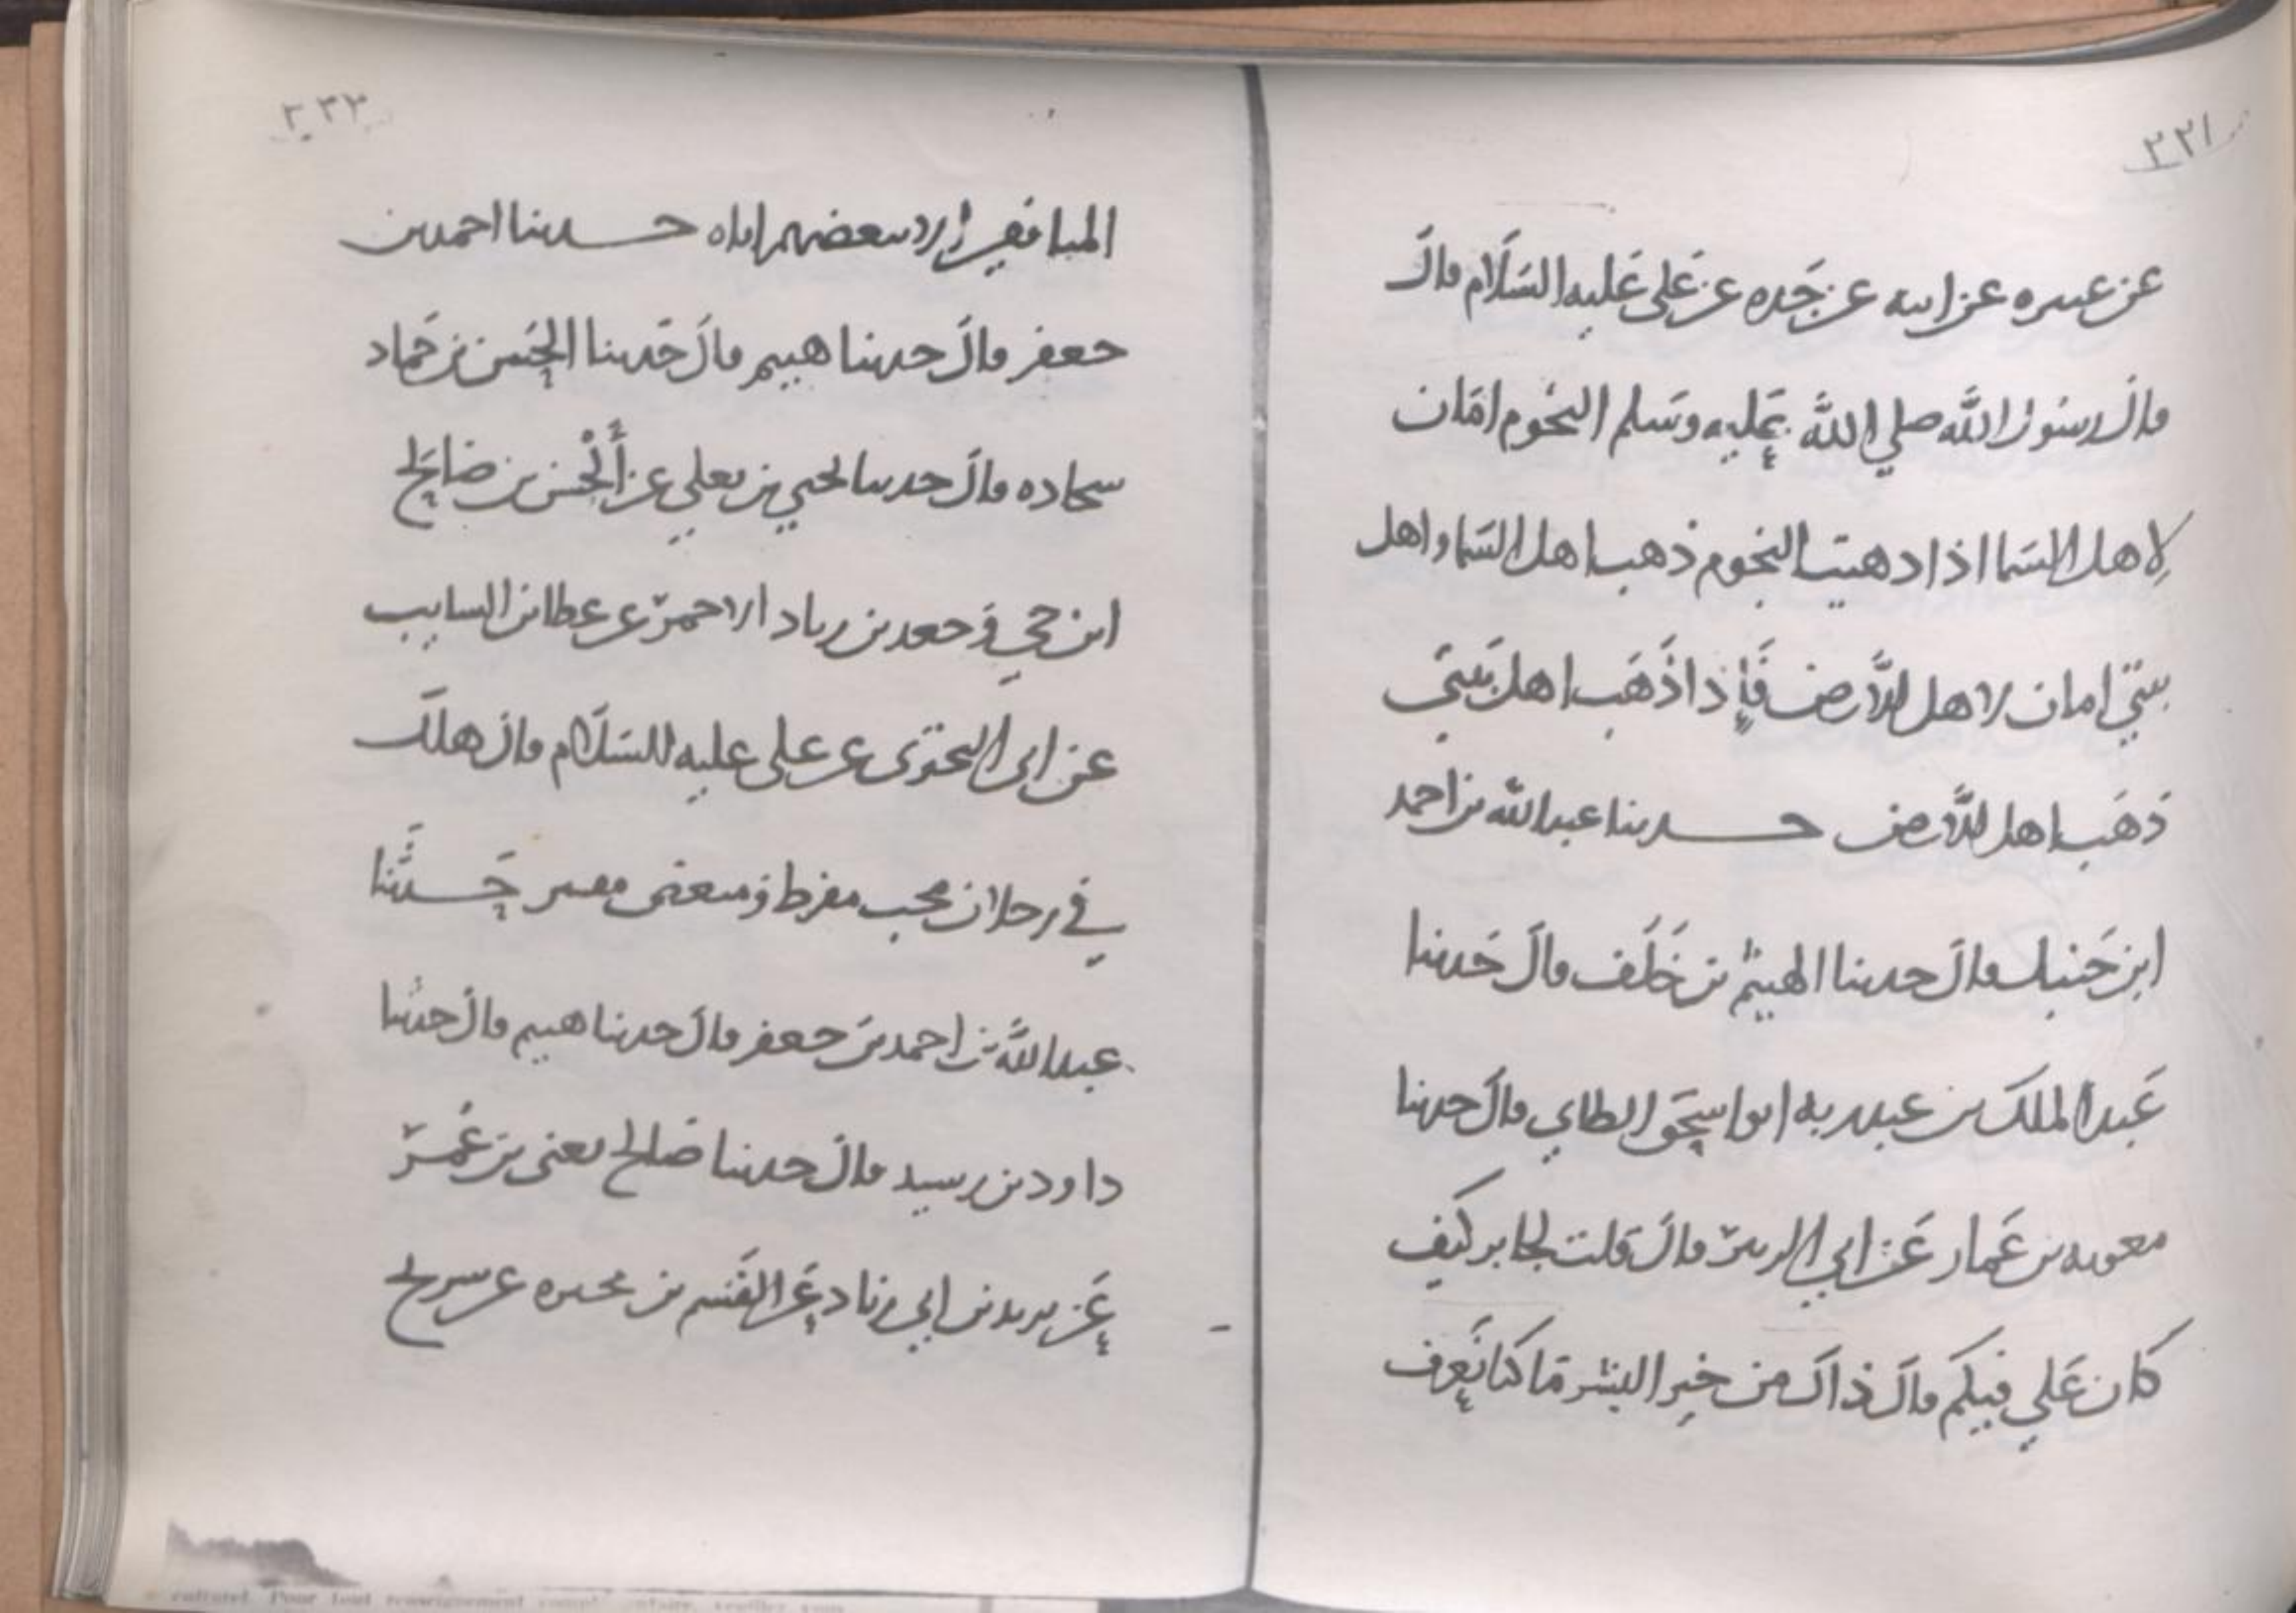 ٣٣١
عن عنتره عن ابيه عن جَده عن عَلى عَليه السَلَام قالَ
قالَ رسُول اللَّه صلي اللَّه عَليه وسَلم النجُوم امَان
لاهل السَما اذا ذهبت النجوم ذهب اهل السَما واهل
بيتيّ امان لاهل الأرض فَإذا ذَهَب اهل بَيتيَ
ذَهَب اهل الأرض حدثنا عبد اللّه بن احمد
ابن حَنبل قالَ حدثنا الهيثم بن خَلَف قالَ حَدثنا
عَبد الملكَ بن عبد ربه ابو اسحَق الطاي قالَ حدثنا
معويه بن عَمار عَن ابي الزبير قالَ قلت لجابر كَيف
كان عَلي فيكم قالَ ذاكَ من خير البشر مَا كنا نَعرف
٣٣٢
المنافقين إلا ببعضهم اياه حدثنا احمد بن
جعفر قالَ حدثنا هيثم قالَ حَدثنا الحَسن بن حَماد
سجاده قالَ حدثنا يحيي بن يعلي عن أَلْحسن بن صَالح
ابن حي وجعفر بن زياد الاحمر عن عطا بن السايب
عن ابي البختري عن على عليه السَلَام قالَ هلكَ
في رجلان محب مفرط ومبغض مفتر حَدَّثنا
عبد اللَّه بن احمد بن جعفر قالَ حدثنا هيثم قالَ حدثنا
داود بن رسيد قالَ حدثنا صَالح يعنى بن عُمر
عَن يزيد بن ابي زناد عَن القَسم بن مخيمره عن سريح